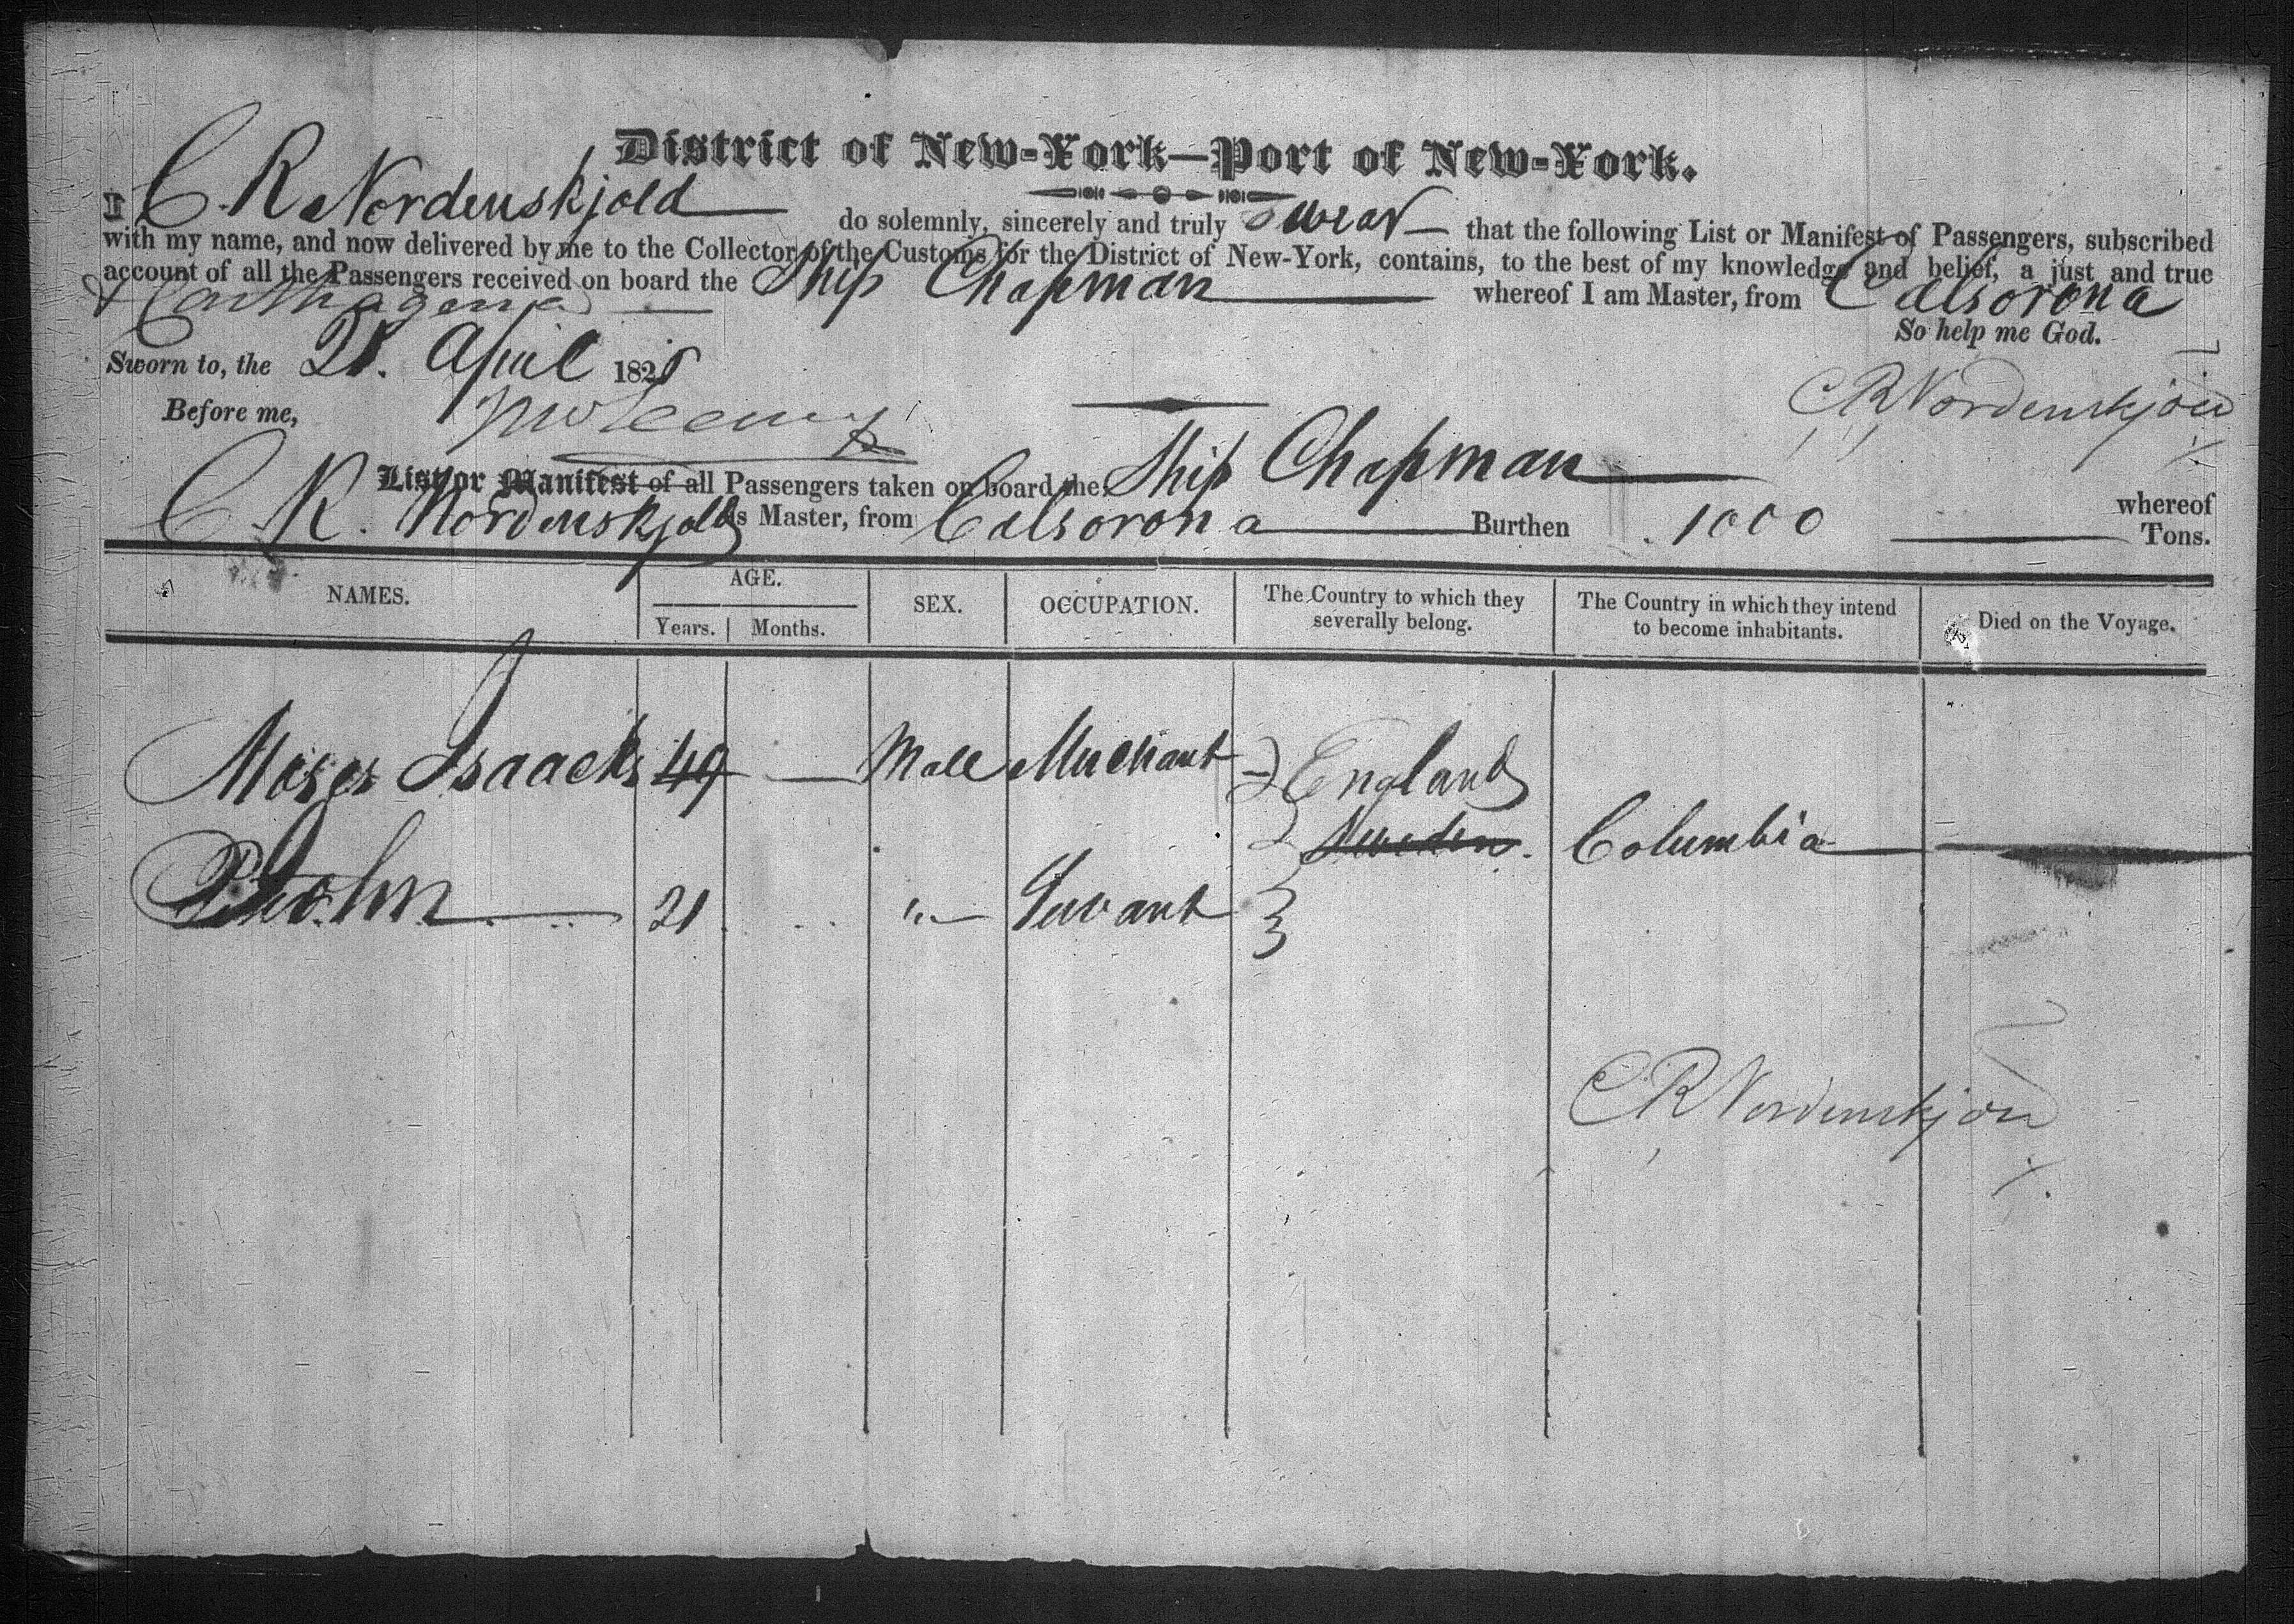 District of New-York—Port of New-York.
I C. R Nordenskjold do solemnly, sincerely and truly swear that the following List or Manifest of Passengers, subscribed
with my name, and now delivered by me to the Collector of the Customs for the District of New-York, contains, to the best of my knowledge and belief, a just and true
account of all the Passengers received on board the Ship Chapman whereof I am Master, from Calsorona
& Carthagena
So help me God.
Sworn to, the 21. April 182
CRNordenskjold
Before me,
List or Manifest of all Passengers taken on board the Ship Chapman whereof
C. R. Nordenskjold is Master, from Calsorona Burthen 1000 Tons.
NAMES. AGE. SEX. OCCUPATION. The Country to which they severally belong. The Country in which they intend to become inhabitants. Died on the Voyage.
Years. Months.
Moses Isaacks 49 — Male Merchant England
Sweden. Columbia
John 21 " Servant
CRNordenskjold